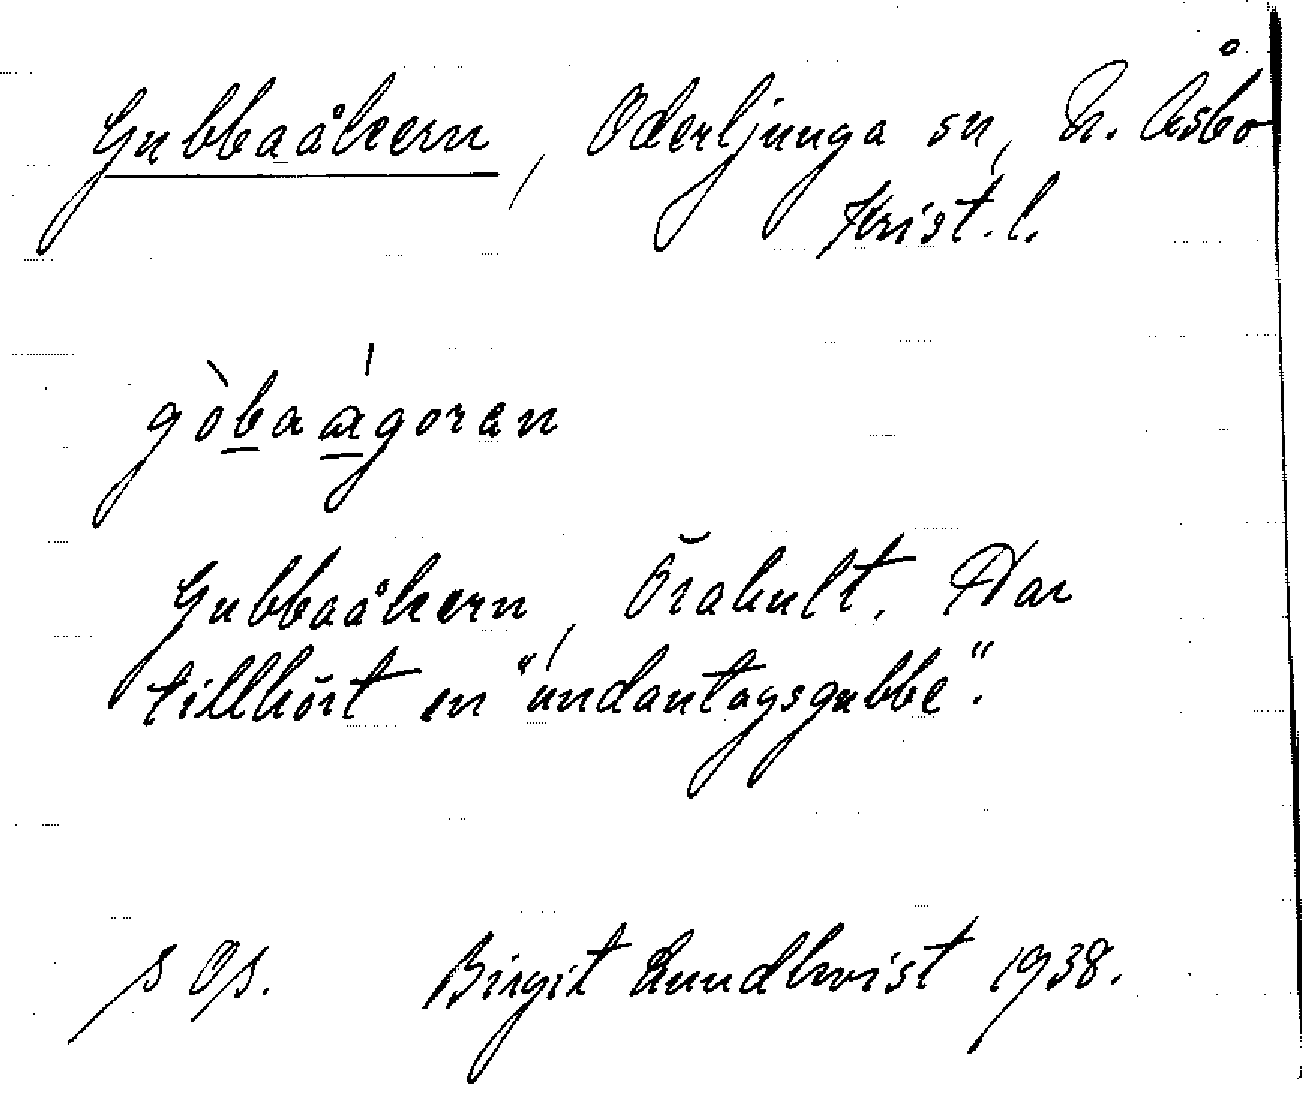 Gubbaåkern, Oderljunga sn, N. Åsbo
Krist. l.
gòbaágoran
Gubbaåkern, Örakult. Har
tillhört en "undantagsgubbe".
Birgit Lundkvist 1938.